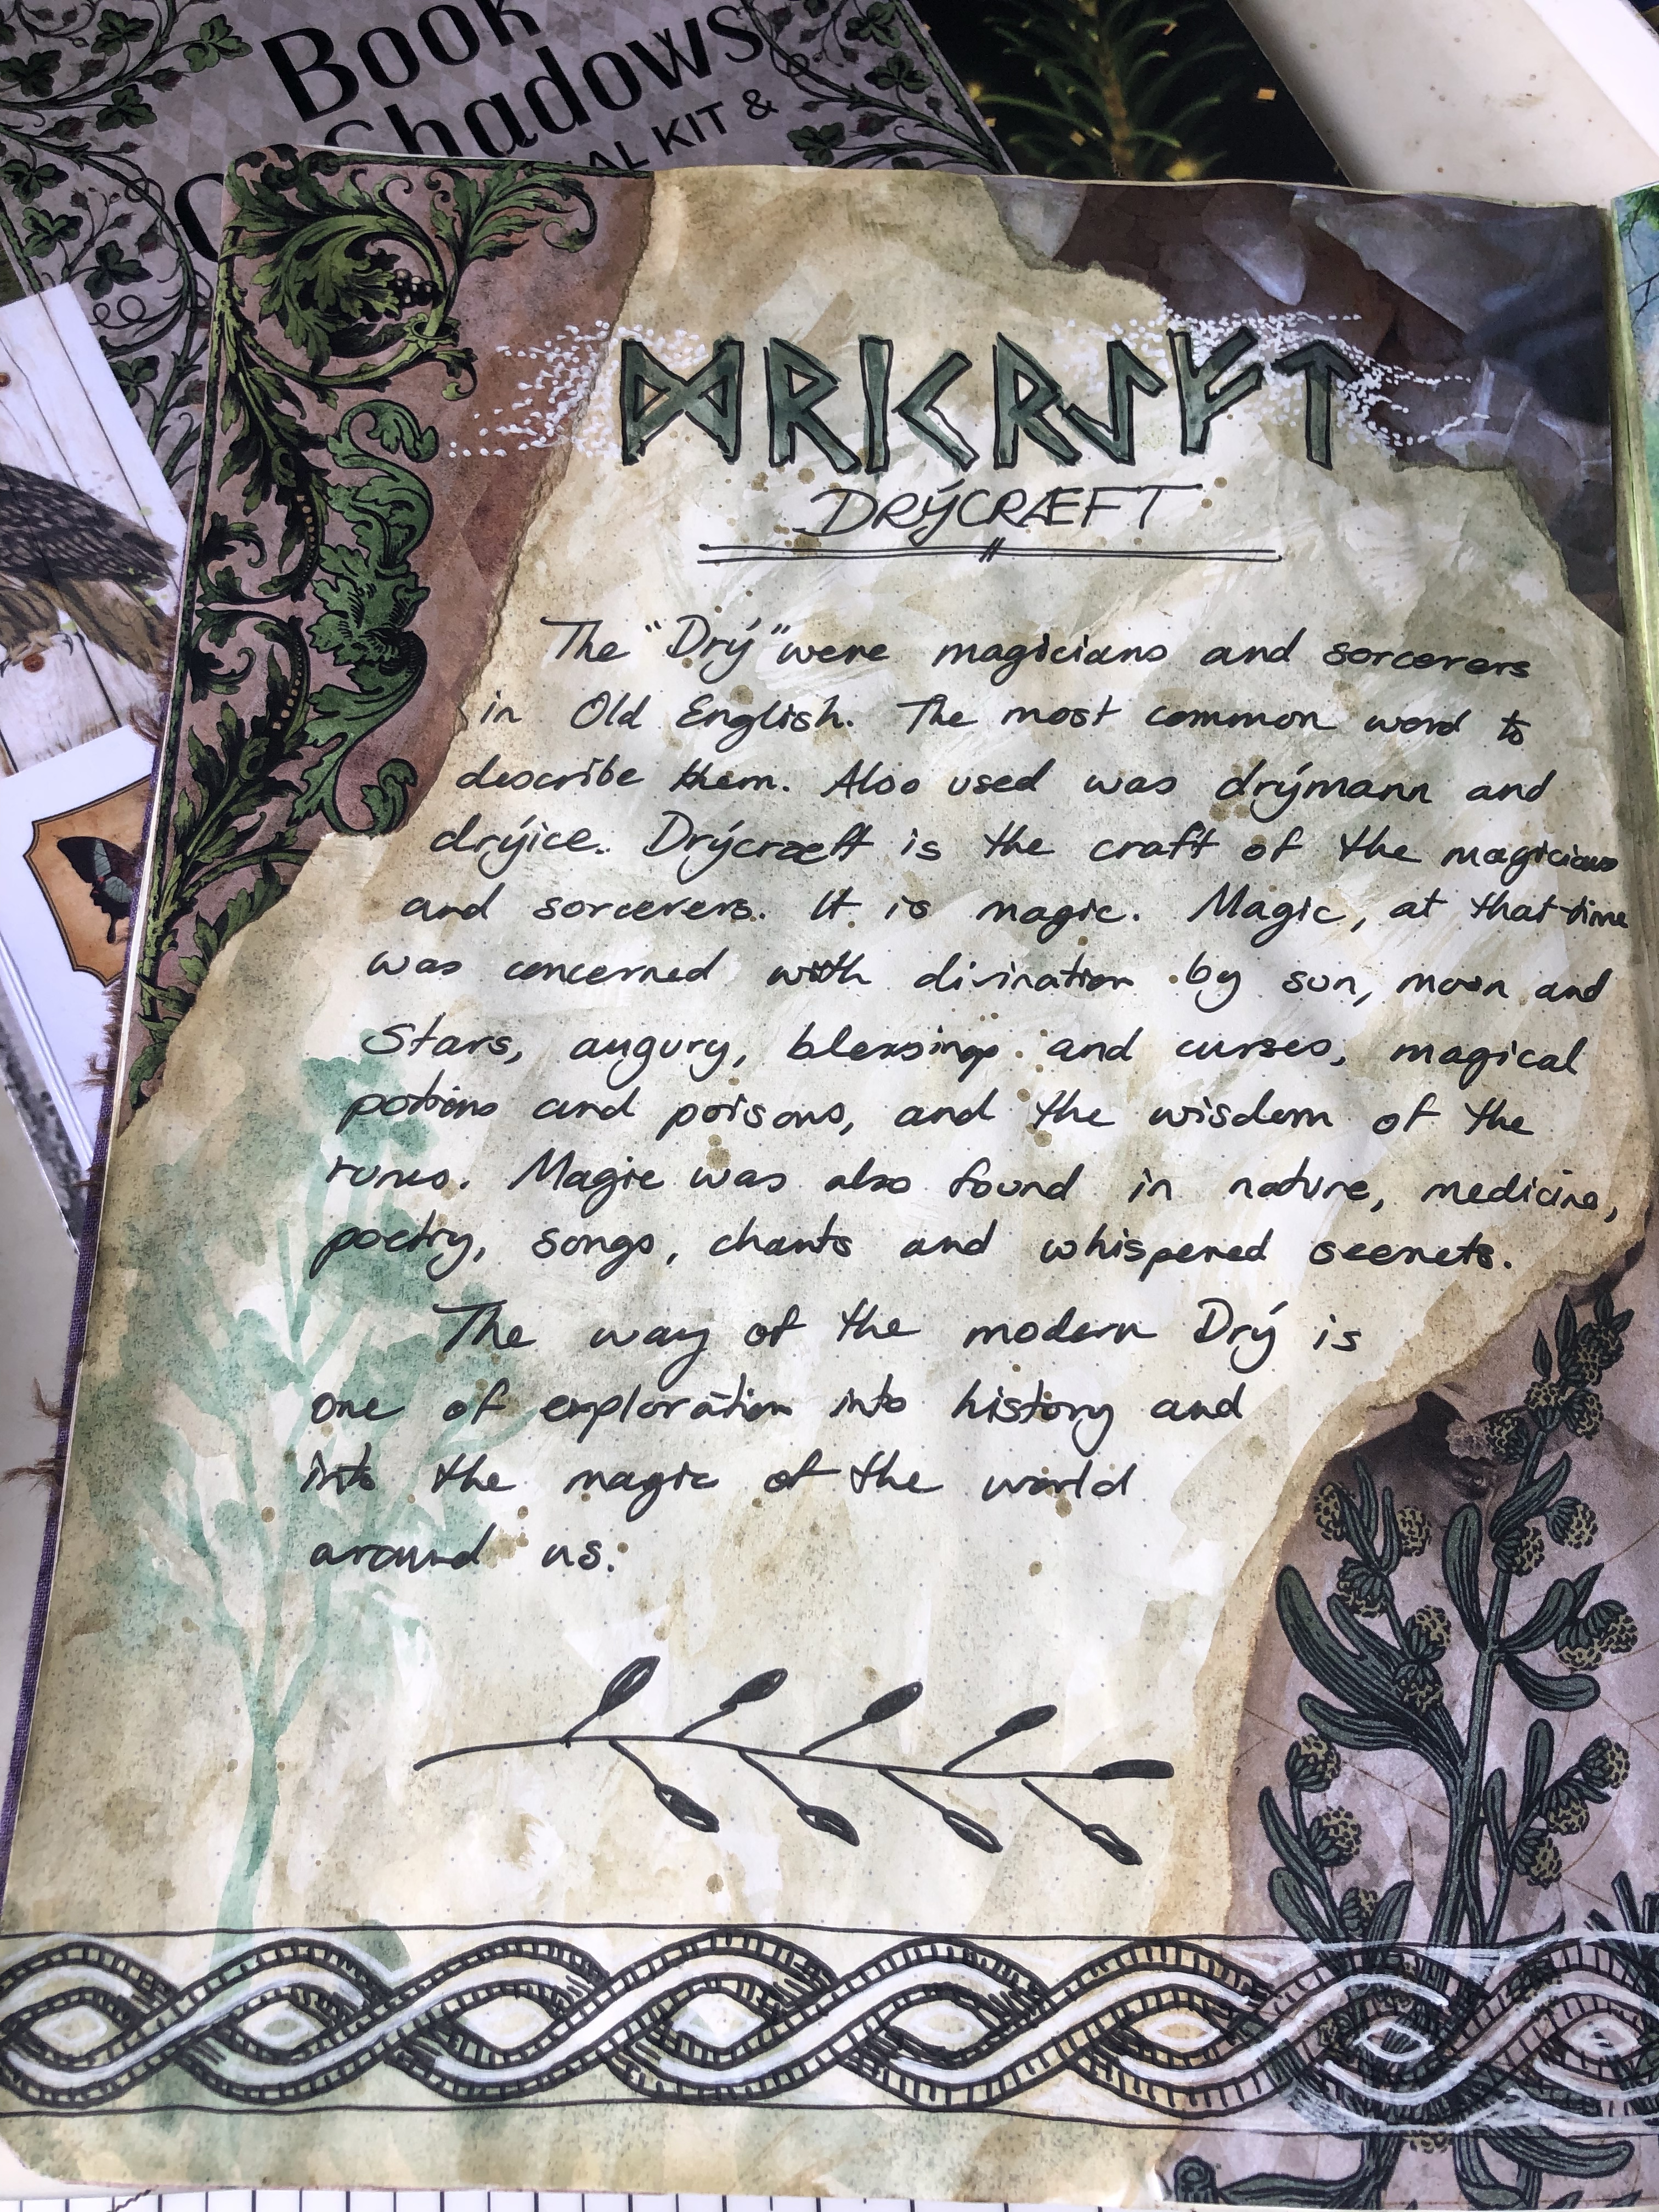 Book
Shadows
KIT &
ᛞᚱᛁᚲᚱᛇᚠᛏ
DRÝCRÆFT
The "Drý" were magicians and sorcerers
in Old English. The most common word to
describe them. Also used was drýmann and
drýice. Drýcræft is the craft of the magicians
and sorcerers. It is magic. Magic, at that time
was concerned with divination by sun, moon and
Stars, augury, blessings and curses, magical
potions and poisons, and the wisdom of the
runes. Magic was also found in nature, medicine,
poetry, songs, chants and whispered secrets.
The way of the modern Drý is
one of exploration into history and
into the magic of the world
around us.